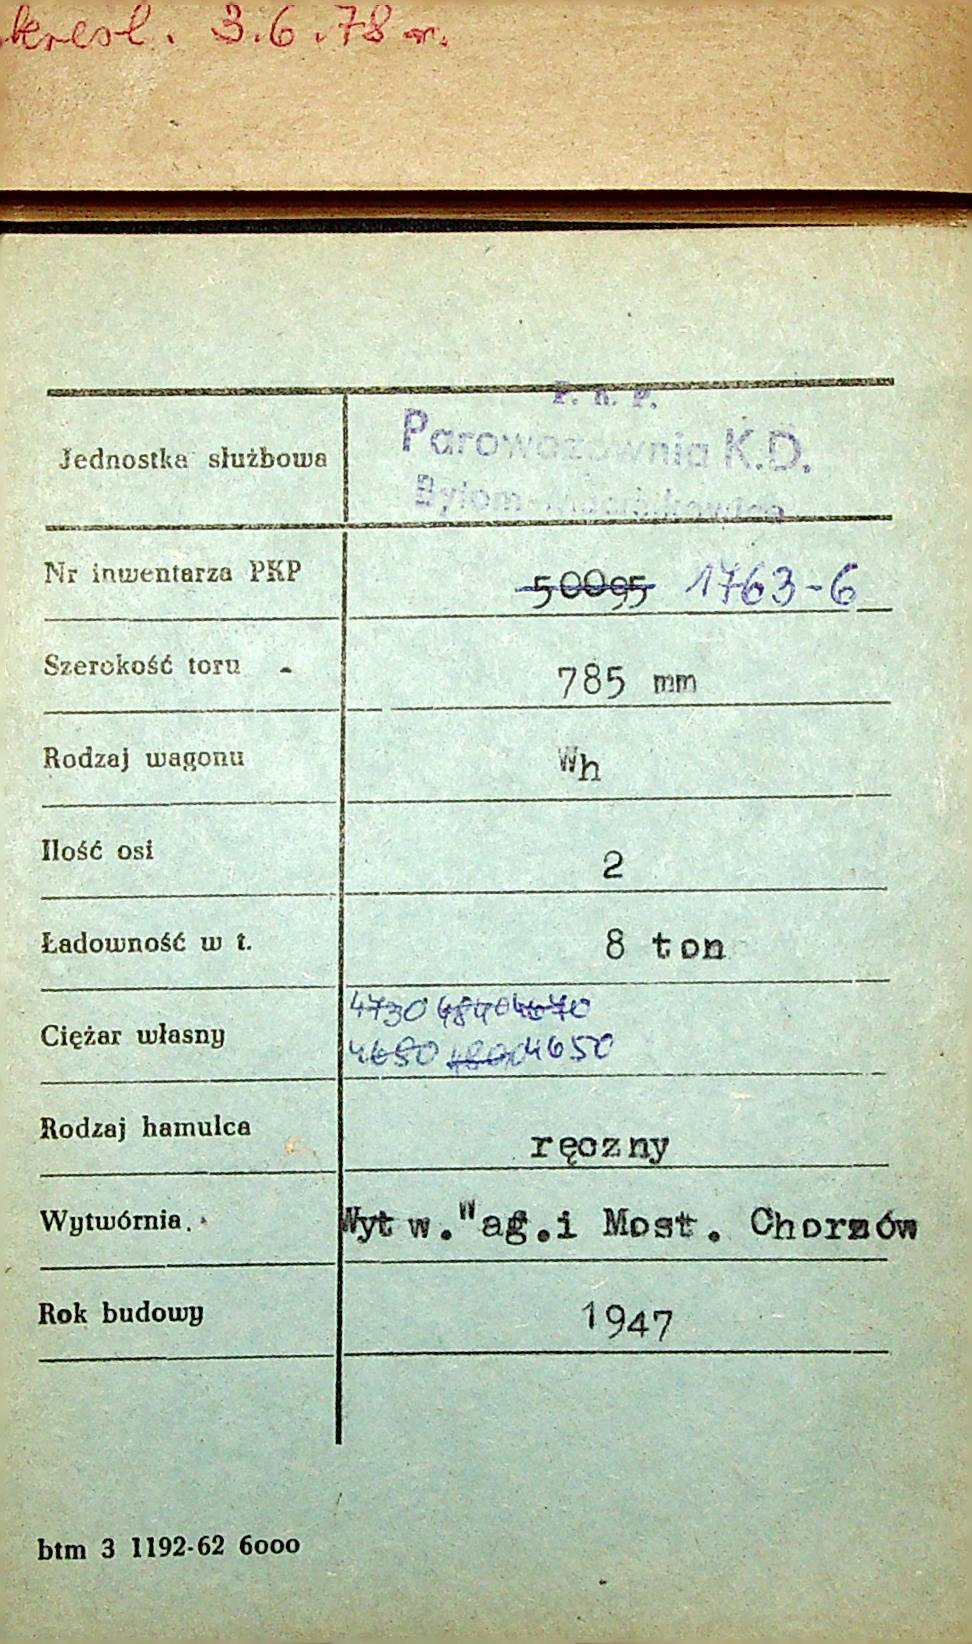 kresl. 3.6.78 r.
P. K. P.
Jednostka służbowa Parowozownia K.D.
Bytom-
Nr inwentarza PKP 50095 1763-6
Szerokość toru 785 mm
Rodzaj wagonu Wh
Ilość osi 2
Ładowność w t. 8 ton
4730 4840 4670
Ciężar własny 4680 4800 4650
Rodzaj hamulca ręczny
Wytwórnia. Wytw. Wag. i Most. Chorzów
Rok budowy 1947
btm 3 1192-62 6000